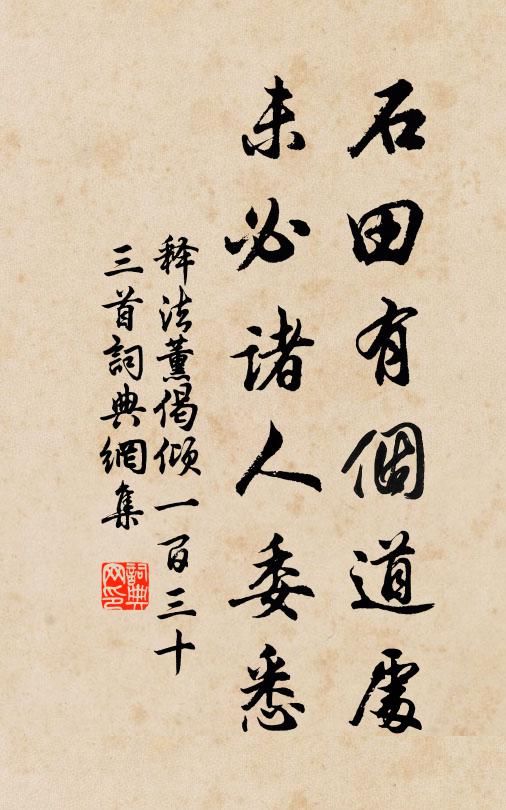 石田有個道處
未必諸人委悉
释法薰偈倾一百三十
三首詞典網集
詞典網印